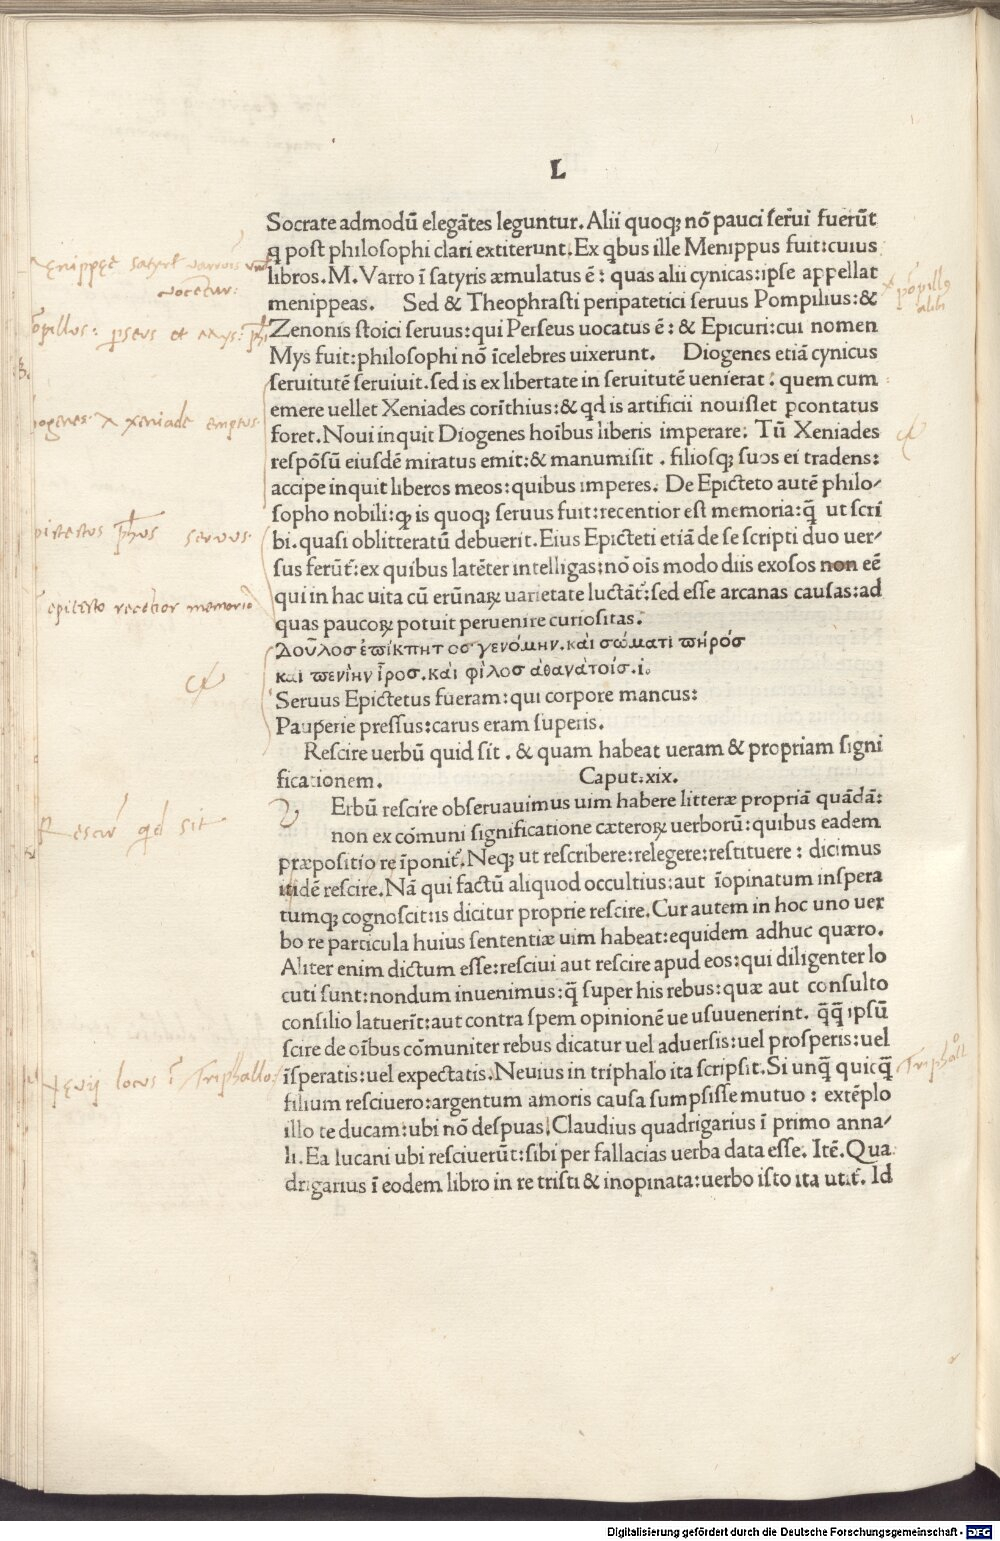 L
Socrate admodū elegātes leguntur. Alii quoq; nō pauci serui fuerūt
q post philosophi clari extiterunt. Ex qbus ille Menippus fuit: cuius
libros. M. Varro ī satyris æmulatus ē: quas alii cynicas: ipse appellat
menippeas. Sed & Theophrasti peripatetici seruus Pompilius: &
Zenonis stoici seruus: qui Perseus uocatus ē: & Epicuri: cui nomen
Mys fuit: philosophi nō īcelebres uixerunt. Diogenes etiā cynicus
seruitutē seruiuit. sed is ex libertate in seruitutē uenierat: quem cum
emere uellet Xeniades corīthius: & qd is artificii nouisset pcontatus
foret. Noui inquit Diogenes hoībus liberis imperare. Tū Xeniades
respōsū eiusdē miratus emit: & manumisit. filiosq; suos ei tradens:
accipe inquit liberos meos: quibus imperes. De Epicteto autē philo-
sopho nobili: q is quoq; seruus fuit: recentior est memoria: q̄ ut scri
bi. quasi oblitteratū debuerit. Eius Epicteti etiā de se scripti duo uer-
sus ferūt: ex quibus latēter intelligas: nō oīs modo diis exosos non eē
qui in hac uita cū erūnaꝝ uarietate luctāt: sed esse arcanas causas: ad
quas paucoꝝ potuit peruenire curiositas.
Δοῦλος ἐπίκτητος γενόμην. καὶ σώματι πηρός
καὶ πενίην ἶρος. καὶ φίλος ἀθανάτοις. i.
Seruus Epictetus fueram: qui corpore mancus:
Pauperie pressus: carus eram superis.
Rescire uerbū quid sit. & quam habeat ueram & propriam signi
ficationem. Caput. xix.
Erbū rescire obseruauimus uim habere litteræ propriā quādā:
non ex cōmuni significatione cæteroꝝ uerborū: quibus eadem
præpositio re īponit. Neq; ut rescribere: relegere: restituere: dicimus
itidē rescire. Nā qui factū aliquod occultius: aut īopinatum inspera
tumq; cognoscit: is dicitur proprie rescire. Cur autem in hoc uno uer
bo re particula huius sententiæ uim habeat: equidem adhuc quæro.
Aliter enim dictum esse: resciui aut rescire apud eos: qui diligenter lo
cuti sunt: nondum inuenimus: q̄ super his rebus: quæ aut consulto
consilio latuerīt: aut contra spem opinionē ue usuuenerint. q̄q̄ ipsū
scire de oībus cōmuniter rebus dicatur uel aduersis: uel prosperis: uel
īsperatis: uel expectatis. Neuius in triphalo ita scripsit. Si unq̄ quicq̄
filium resciuero: argentum amoris causa sumpsisse mutuo: extēplo
illo te ducam: ubi nō despuas. Claudius quadrigarius ī primo anna-
li. Ea lucani ubi resciuerūt: sibi per fallacias uerba data esse. Itē. Qua
drigarius ī eodem libro in re tristi & inopinata: uerbo isto ita utit. Id
vocetur:
xeniade emptus
servus
epicteto recentior memoria
Rescire qd sit
locus ī Triphallo:
Digitalisierung gefördert durch die Deutsche Forschungsgemeinschaft - DFG